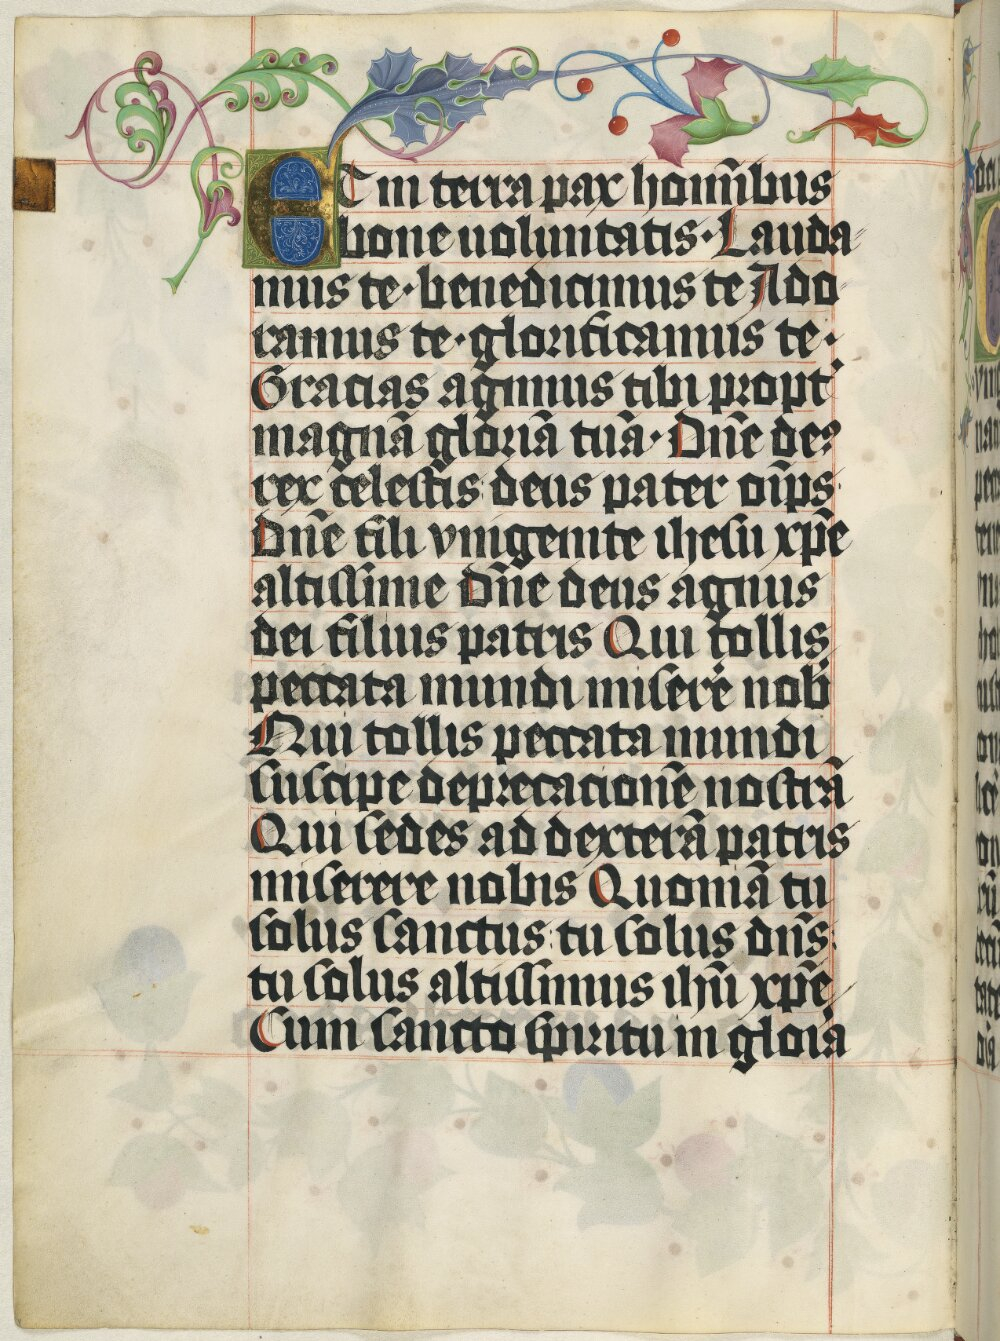 ET in terra pax homi͂bus
bone uoluntatis · Lauda⸗
mus te · benedicimus te Ado⸗
ramus te · glorificamus te ·
Gracias agimus tibi propt᾽
magnā gloriā tuā · Dn̄e de⁹
rex celestis deus pater om̄ps ·
Dn̄e fili vnigenite ihesu xp̄e
altissime Dn̄e deus agnus
dei filius patris Qui tollis
peccata mundi misere᾽e nob᾽
Qui tollis peccata mundi
suscipe deprecationē nostrā
Qui sedes ad dexterā patris
miserere nobis Quoniā tu
solus sanctus : tu solus dn̄s :
tu solus altissimus ihū xp̄e
Cum sancto spiritu in gloīa